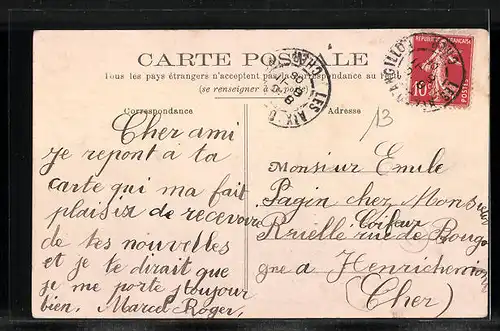 CARTE POSTALE
Tous les pays étrangers n'acceptent pas la Correspondance au
(se renseigner à la poste)
Correspondance
Cher ami
je repont a ta
carte qui ma fait
plaisir de recevoire
de tes nouvelles
et je te dirait que
je me porte toujour
bien. Marcel Roger,
Adresse
13
Monsieur Emile
Pagin chez Monsieur
Coifeur
Rielle rue de Bourgo
gne a Henrichemont
(Cher)
REPUBLIQUE FRANÇAISE
10c
POSTES
LES AIX D'ANGILLON
CHER